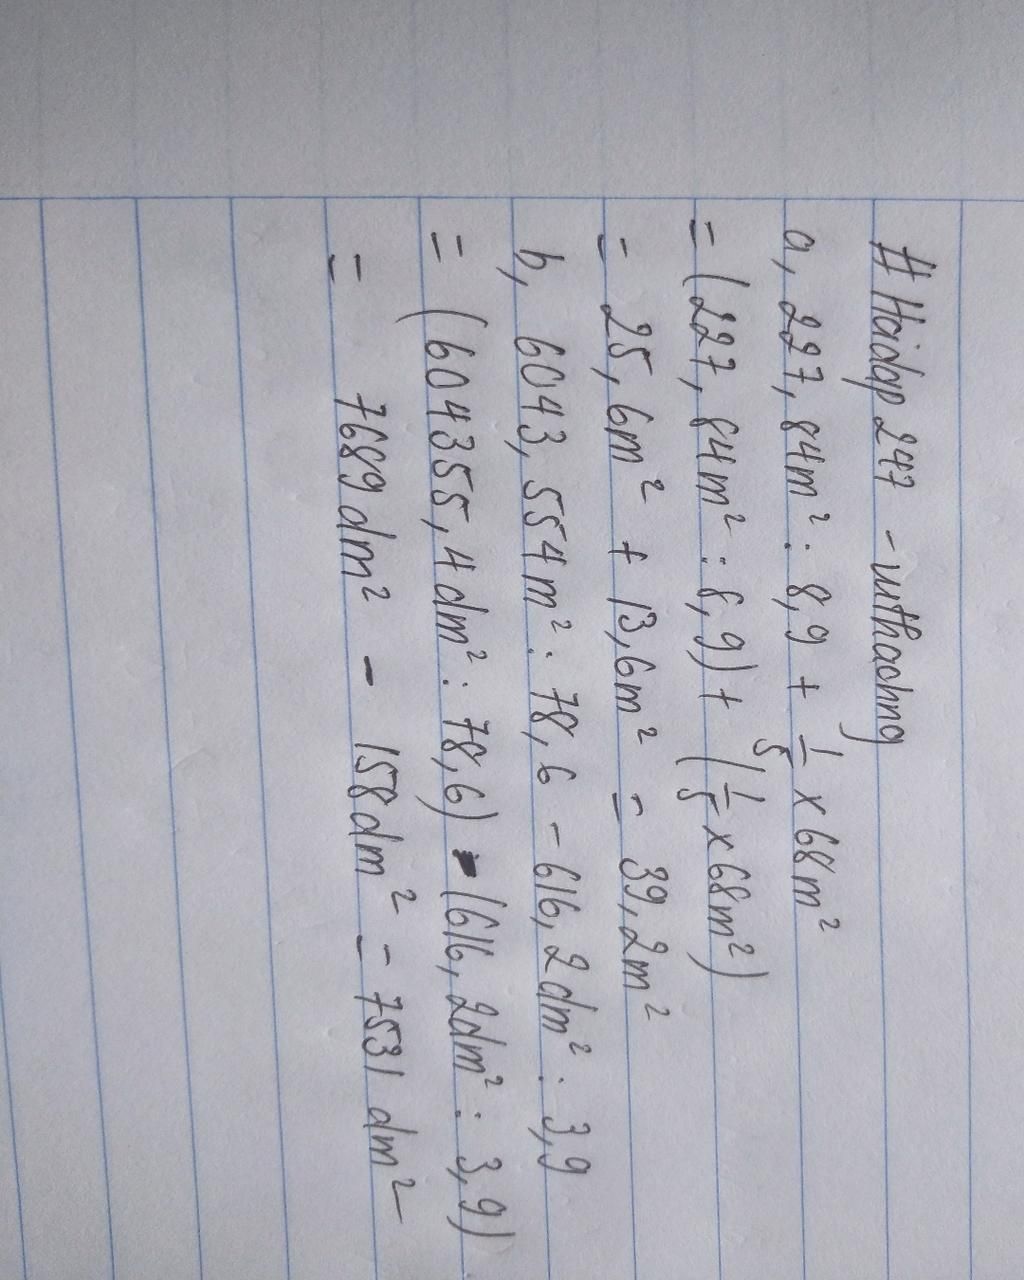 # Haidap 247 - nuthachng
a, 227,84m² : 8,9 + 1/5 x 68m²
= (227,84m² : 8,9) + (1/5 x 68m²)
= 25,6m² + 13,6m² = 39,2m²
b, 6043,554m² : 78,6 - 616,2dm² : 3,9
= (604355,4dm² : 78,6) - (616,2dm² : 3,9)
= 7689dm² - 158dm² = 7531dm²